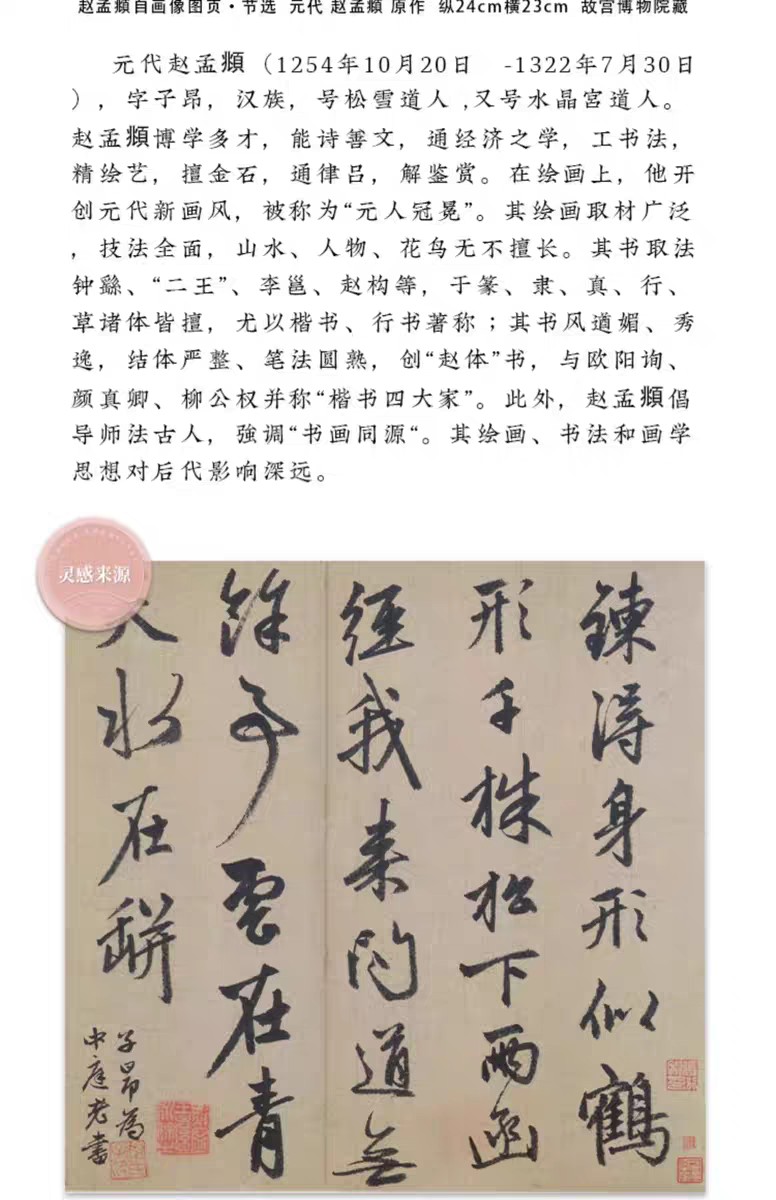 赵孟頫自画像图页·节选 元代 赵孟頫 原作 纵24cm横23cm 故宫博物院藏
元代赵孟頫（1254年10月20日 -1322年7月30日
），字子昂，汉族，号松雪道人,又号水晶宫道人。
赵孟頫博学多才，能诗善文，通经济之学，工书法，
精绘艺，擅金石，通律吕，解鉴赏。在绘画上，他开
创元代新画风，被称为“元人冠冕”。其绘画取材广泛
，技法全面，山水、人物、花鸟无不擅长。其书取法
钟繇、“二王”、李邕、赵构等，于篆、隶、真、行、
草诸体皆擅，尤以楷书、行书著称；其书风遒媚、秀
逸，结体严整、笔法圆熟，创“赵体”书，与欧阳询、
颜真卿、柳公权并称“楷书四大家”。此外，赵孟頫倡
导师法古人，強调“书画同源“。其绘画、书法和画学
思想对后代影响深远。
灵感来源
鍊得身形似鶴
形千株松下兩函
經我来问道無
餘事雲在青
天水在缾
子昂為
中庭老書